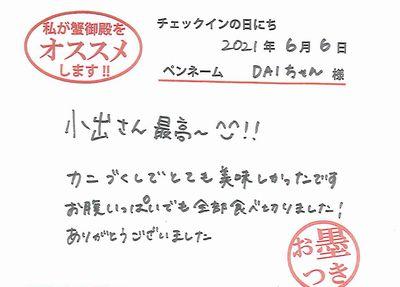 私が蟹御殿を
オススメ
します!!
チェックインの日にち
2021年6月6日
ペンネーム DAIちゃん 様
小出さん最高〜^^!!
カニづくしでとても美味しかったです
お腹いっぱいでも全部食べ切りました!
ありがとうございました
お墨
つき